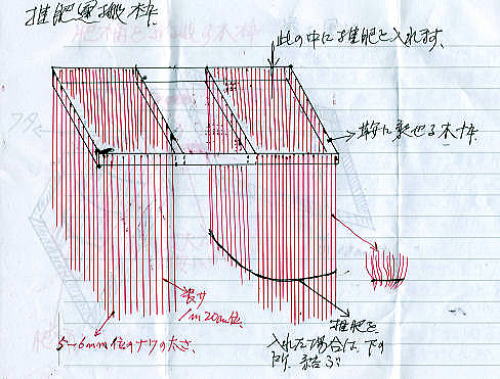 堆肥運搬枠
此の中に堆肥を入れます。
フタ
背に乗せる木枠
長サ
1m20cm位
5~6mm位のナワの太さ、
堆肥を
入れた場合は、下の
所、結ぶ